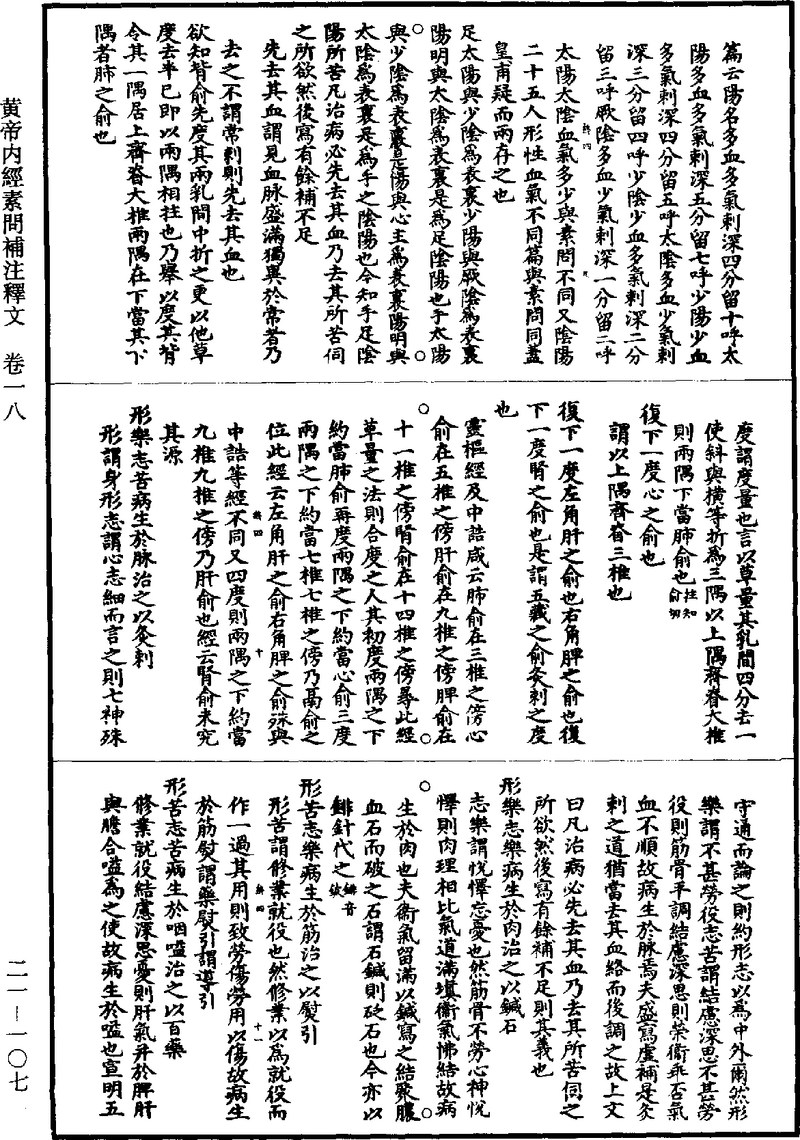 黄帝內經素問補注釋文 卷一八
二一—一〇七
篇云陽名多血多氣刺深四分留十呼太
陽多血多氣刺深五分留七呼少陽少血
多氣刺深四分留五呼太陰多血少氣刺
深三分留四呼少陰少血多氣刺深二分
留三呼厥陰多血少氣刺深一分留二呼
太陽太陰血氣多少與素問不同又陰陽
二十五人形性血氣不同篇與素問同蓋
皇甫疑而兩存之也
足太陽與少陰為表裏少陽與厥陰為表裏
陽明與太陰為表裏是為足陰陽也手太陽
與少陰為表裏少陽與心主為表裏陽明與
太陰為表裏是為手之陰陽也今知手足陰
陽所苦凡治病必先去其血乃去其所苦伺
之所欲然後寫有餘補不足
先去其血謂見血脉盛滿獨異於常者乃
去之不謂常刺則先去其血也
欲知背俞先度其兩乳間中折之更以他草
度去半已即以兩隅相拄也乃舉以度其背
令其一隅居上齊脊大椎兩隅在下當其下
隅者肺之俞也
度謂度量也言以草量其乳間四分去一
使斜與橫等折為三隅以上隅齊脊大椎
則兩隅下當肺俞也拄知俞切
復下一度心之俞也
謂以上隅齊脊三椎也
復下一度左角肝之俞也右角脾之俞也復
下一度腎之俞也是謂五藏之俞灸刺之度
也
靈樞經及中誥咸云肺俞在三椎之傍心
俞在五椎之傍肝俞在九椎之傍脾俞在
十一椎之傍腎俞在十四椎之傍尋此經
草量之法則合度之人其初度兩隅之下
約當肺俞再度兩隅之下約當心俞三度
兩隅之下約當七椎七椎之傍乃鬲俞之
位此經云左角肝之俞右角脾之俞殊與
中誥等經不同又四度則兩隅之下約當
九椎九椎之傍乃肝俞也經云腎俞未究
其源
形樂志苦病生於脉治之以灸刺
形謂身形志謂心志細而言之則七神殊
守通而論之則約形志以為中外爾然形
樂謂不甚勞役志苦謂結慮深思不甚勞
役則筋骨平調結慮深思則榮衞乖否氣
血不順故病生於脉焉夫盛寫虛補是灸
刺之道猶當去其血絡而後調之故上文
曰凡治病必先去其血乃去其所苦伺之
所欲然後寫有餘補不足則其義也
形樂志樂病生於肉治之以鍼石
志樂謂悅懌忘憂也然筋骨不勞心神悅
懌則肉理相比氣道滿填衞氣怫結故病
生於肉也夫衞氣留滿以鍼寫之結聚膿
血石而破之石謂石鍼則砭石也今亦以
䤵針代之
形苦志樂病生於筋治之以熨引
形苦謂修業就役也然修業以為就役而
作一過其用則致勞傷勞用以傷故病生
於筋熨謂藥熨引謂導引
形苦志苦病生於咽嗌治之以百藥
修業就役結慮深思憂則肝氣并於脾肝
與膽合嗌為之使故病生於嗌也宣明五